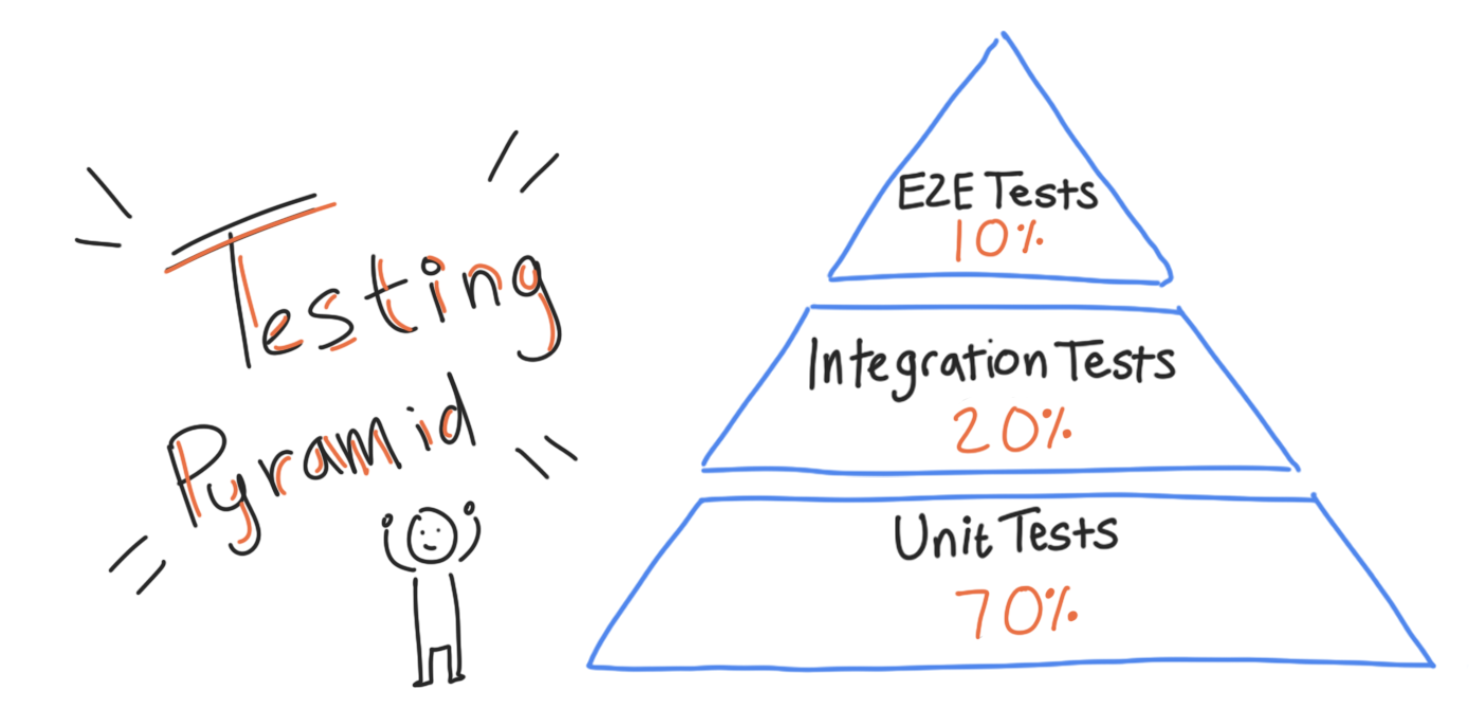 Testing
Pyramid
E2E Tests
10%
Integration Tests
20%
Unit Tests
70%